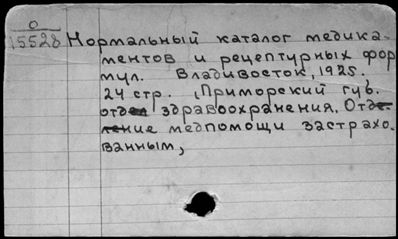 0
15528
Нормальный каталог медика-
ментов и рецептурных фор
мул. Владивосток, 1925.
24 стр. (Приморский губ.
отдел здравоохранения. Отде-
ление медпомощи застрахо.
ванным,